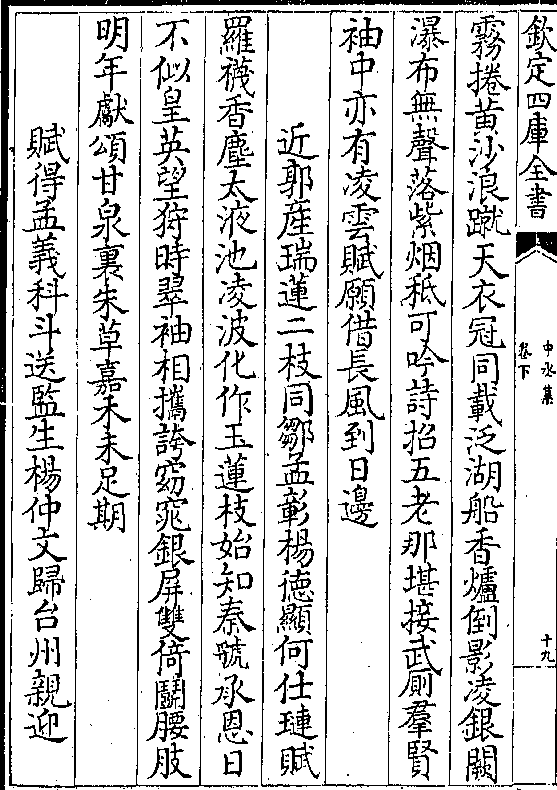 欽定四庫全書
中丞集
卷下
十九
霧捲黄沙浪蹴天衣冠同載泛湖船香爐倒影凌銀闕
瀑布無聲落紫烟秪可吟詩招五老那堪接武厠羣賢
袖中亦有凌雲賦願借長風到日邊
近郭産瑞蓮二枝同鄒孟彰楊徳顯何仕璉賦
羅襪香塵太液池凌波化作玉蓮枝始知秦虢承恩日
不似皇英望狩時翠袖相攜誇窈窕銀屏雙倚鬭腰肢
明年獻頌甘泉裏朱草嘉禾未足期
賦得孟義科斗送監生楊仲文歸台州親迎